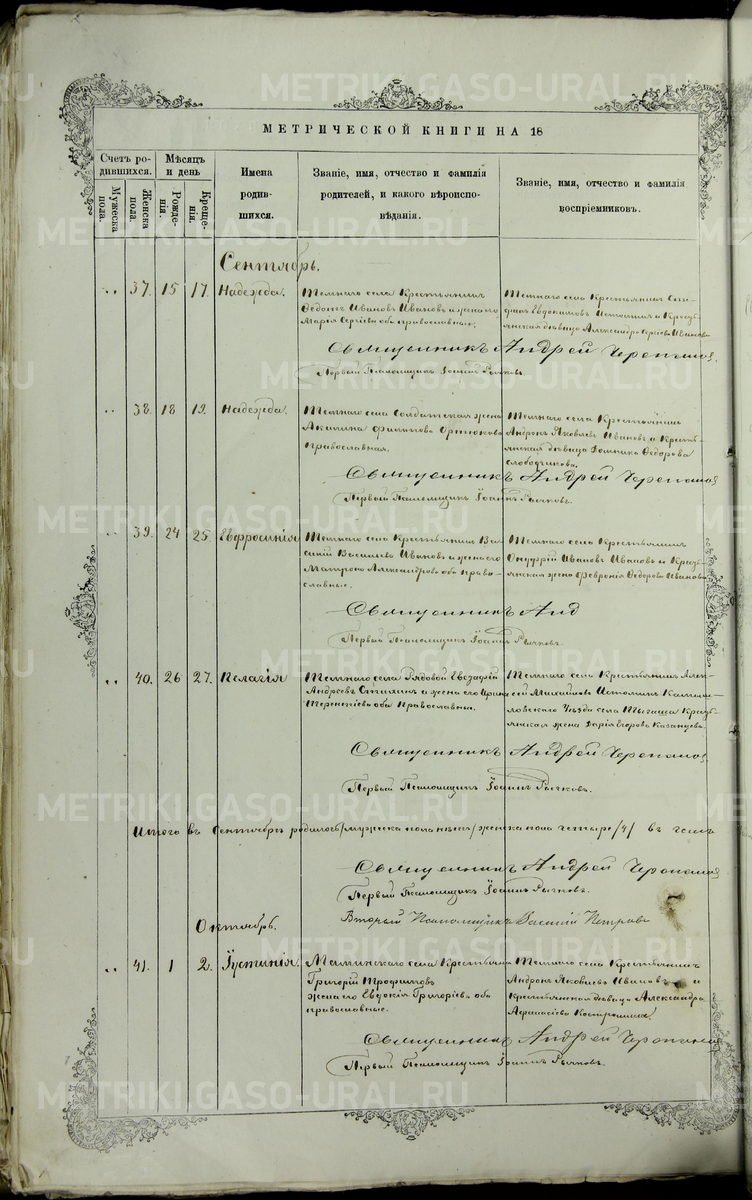 МЕТРИЧЕСКОЙ КНИГИ НА 18
Счетъ ро-
дившихся.
Мужеска
пола.
Женска
пола.
Мѣсяцъ
и день
Рожде-
нія.
Креще-
нія.
Имена
родив-
шихся.
Званіе, имя, отчество и фамилія
родителей, и какого вѣроиспо-
вѣданія.
Званіе, имя, отчество и фамилія
воспріемниковъ.
Сентябрь.
37. 15 17. Надежда.
Темнаго села Крестьянинъ
Федотъ Ивановъ Ивановъ и жена его
Марія Сергіева оба православные.
Темнаго села Крестьянинъ
Евдокимовъ Истоминъ и Кресть-
янская дѣвица Александра Сергіева Иванова
Священникъ Андрей
Первый Псаломщикъ Іоаннъ Рычковъ.
38. 18 19. Надежда.
Темнаго села Солдатская жена
Акилина Филиппова
православная.
Темнаго села Крестьянинъ
Андронъ Яковлевъ Ивановъ и Кресть-
янская дѣвица Домника Федорова
Слободчикова.
Священникъ Андрей
Первый Псаломщикъ Іоаннъ Рычковъ.
39. 24 25. Евфросинія
Темнаго села Крестьянинъ Ва-
силій Васильевъ Ивановъ и жена его
Матрона Александрова оба право-
славные.
Темнаго села Крестьянинъ
Онуфрій Ивановъ Ивановъ и Кресть-
янская жена Февронія Федорова Иванова
Священникъ Анд
Первый Псаломщикъ Іоаннъ Рычковъ.
40. 26 27. Пелагія
Темнаго села Рядовой
Андреевъ и жена его Ирина
Терентіева оба Православны.
Темнаго села Крестьянинъ Алек-
сѣй Михайловъ Истоминъ Камыш-
ловскаго Уѣзда села Тыгиша Кресть-
янская жена Дарія Егорова Казанцева.
Священникъ Андрей
Первый Псаломщикъ Іоаннъ Рычковъ.
Итого въ Сентябрѣ родилось мужеска пола нѣтъ женска пола четыре /4/ въ чемъ
Священникъ Андрей
Первый Псаломщикъ Іоаннъ Рычковъ.
Второй Псаломщикъ Василій Петровъ
Октябрь.
41. 1 2. Іустинія.
Маминскаго села Крестьянинъ
Григорій Трофимовъ
жена его Евдокія Григоріева оба
православные.
Темнаго села Крестьянинъ
Андронъ Яковлевъ Ивановъ и
Крестьянская дѣвица Александра
Афанасіева
Священникъ Андрей
Первый Псаломщикъ Іоаннъ Рычковъ.
METRIKI.GASO-URAL.RU